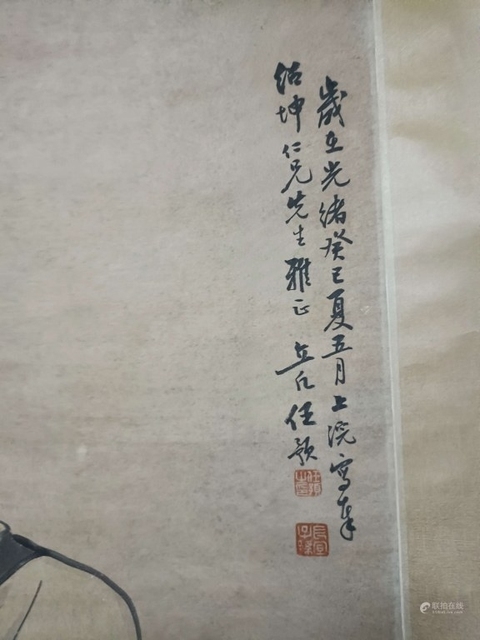 歲在光緒癸巳夏五月上浣寫奉
紹坤仁兄先生雅正 立凡任預
任預
联拍在线